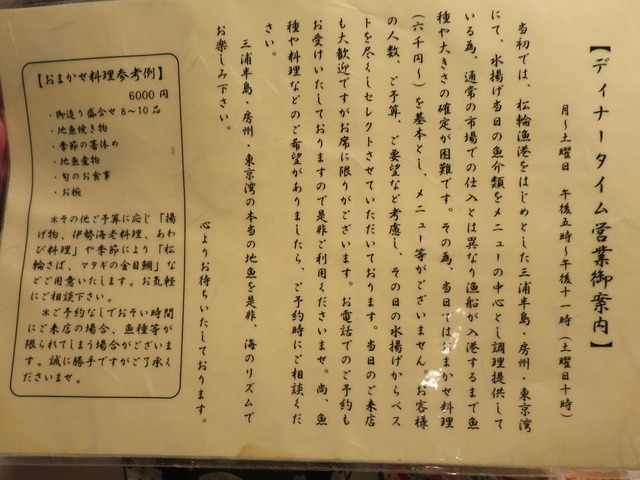 【ディナータイム営業御案内】
月～土曜日　午後五時～午後十一時（土曜日十時）
当初では、松輪漁港をはじめとした三浦半島・房州・東京湾
にて、水揚げ当日の魚介類をメニューの中心とし調理提供して
いる為、通常の市場での仕入とは異なり漁船が入港するまで魚
種や大きさの確定が困難です。その為、当日ではおまかせ料理
（六千円～）を基本とし、メニュー等がございません。お客様
の人数、ご予算、ご要望など考慮し、その日の水揚げからベス
トを尽くしセレクトさせていただいております。当日のご来店
も大歓迎ですがお席に限りがございます。お電話でのご予約も
お受けいたしておりますので是非ご利用くださいませ。尚、魚
種や料理などのご希望がありましたら、ご予約時にご相談くだ
さい。
三浦半島・房州・東京湾の本当の地魚を是非、海のリズムで
お楽しみ下さい。
心よりお待ちいたしております。
【おまかせ料理参考例】
6000円
・御造り盛合せ8～10品
・地魚焼き物
・季節の箸休め
・地魚煮物
・旬のお食事
・お椀
※その他ご予算に応じ「揚
げ物、伊勢海老料理、あわ
び料理」や季節により「松
輪さば、マタギの金目鯛」な
どご用意いたします。お気軽
にご相談下さい。
※ご予約なしでおそい時間
にご来店の場合、魚種等が
限られてしまう場合がございま
す。誠に勝手ですがご了承く
ださいませ。